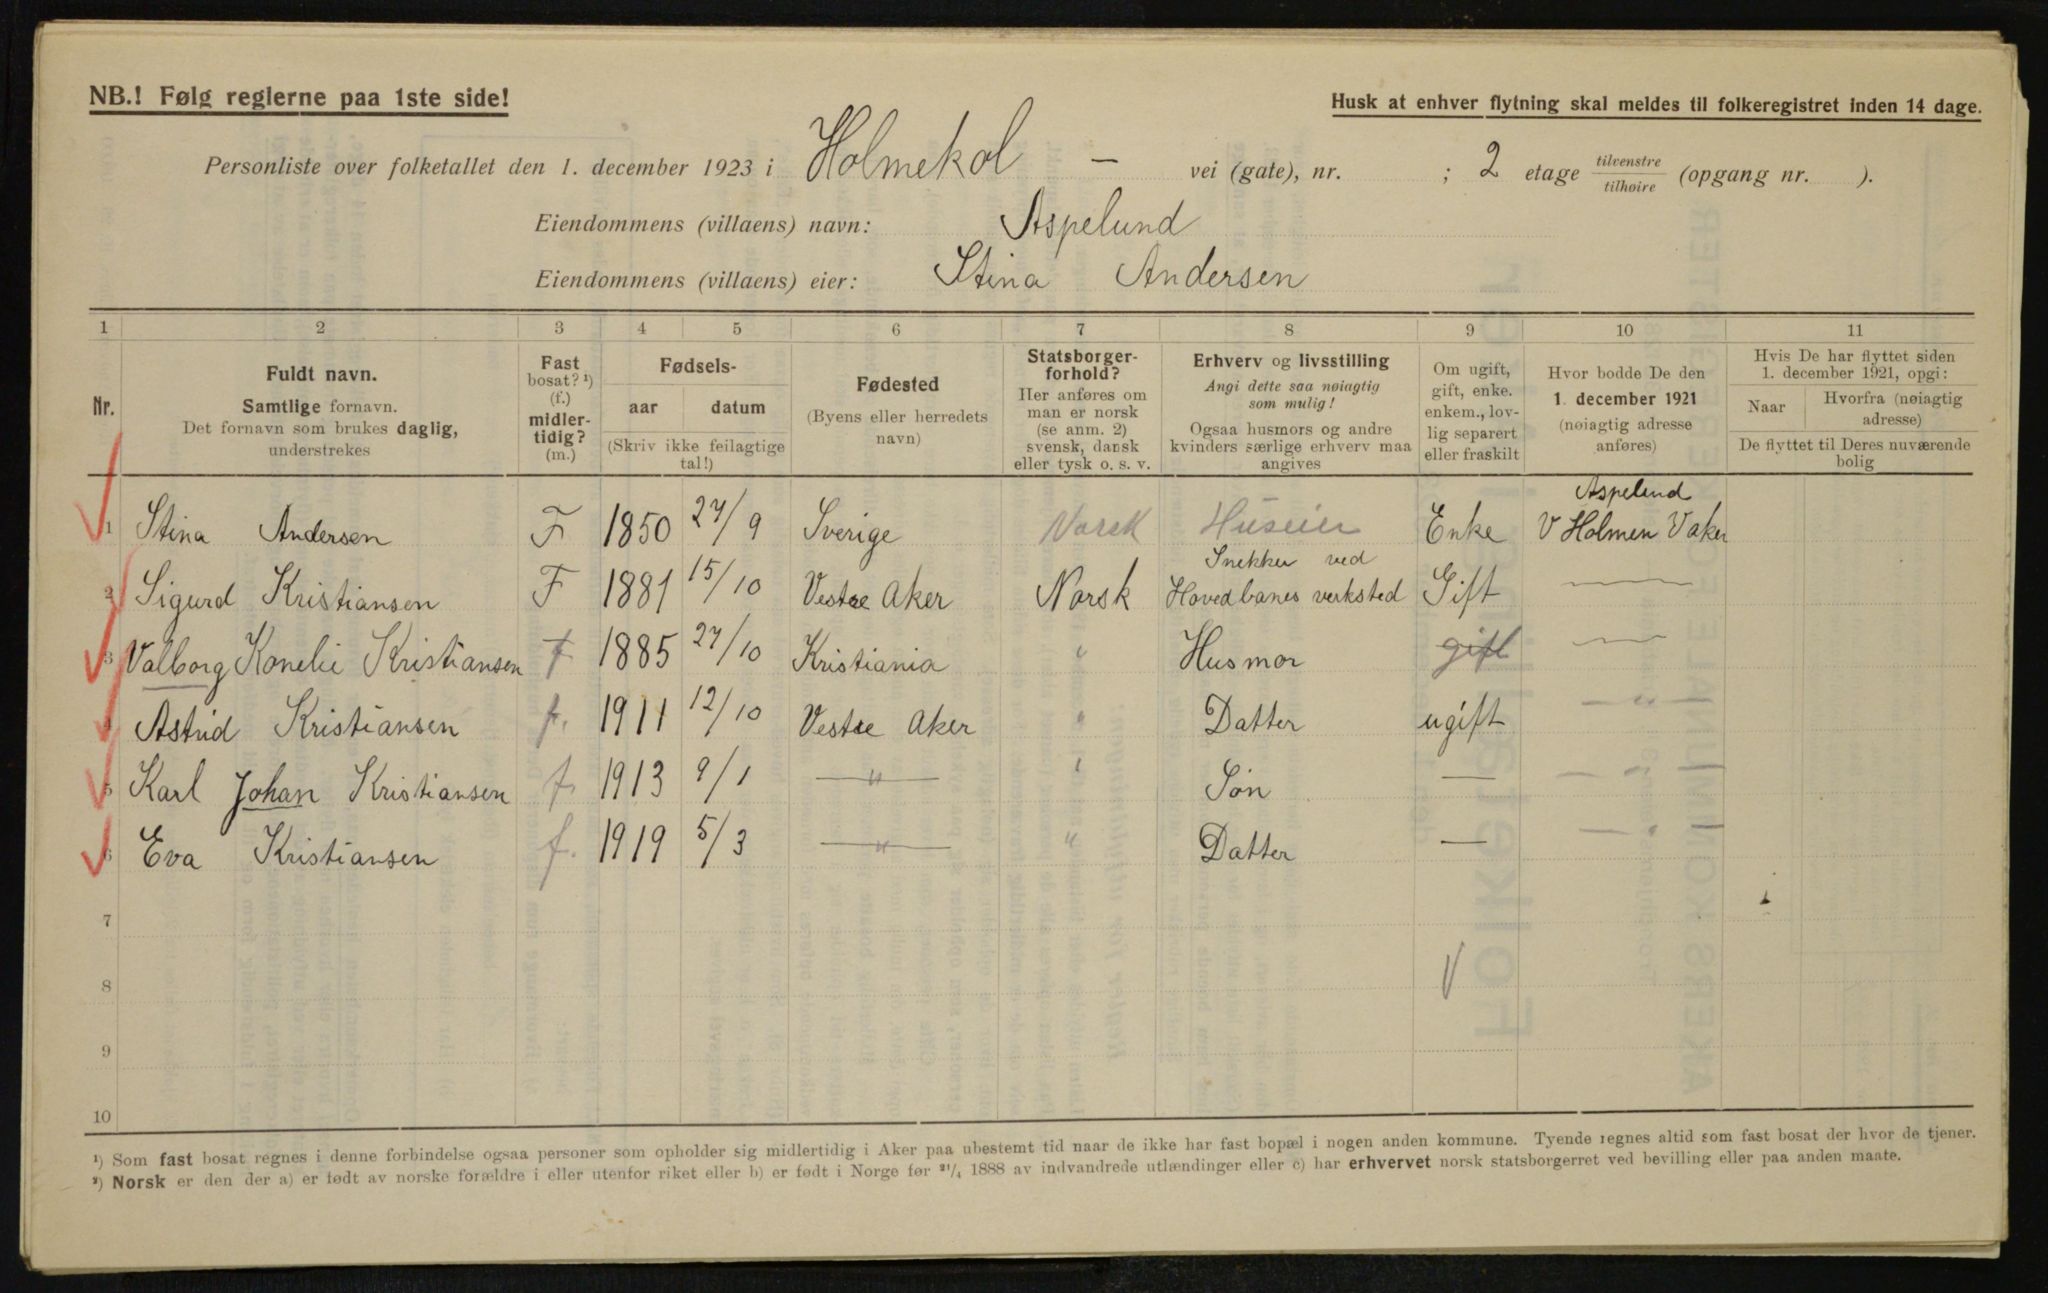 NB.! Følg reglerne paa 1ste side!
Husk at enhver flytning skal meldes til folkeregistret inden 14 dage.
Personliste over folketallet den 1. december 1923 i Holmekol — vei (gate), nr. ; 2 etage tilvenstre tilhøire (opgang nr. ).
Eiendommens (villaens) navn: Aspelund
Eiendommens (villaens) eier: Stina Andersen
1 2 3 4 5 6 7 8 9 10 11
Nr.
Fuldt navn.
Samtlige fornavn.
Det fornavn som brukes daglig,
understrekes
Fast
bosat? ¹)
(f.)
midler-
tidig?
(m.)
Fødsels-
aar datum
(Skriv ikke feilagtige
tal!)
Fødested
(Byens eller herredets
navn)
Statsborger-
forhold?
Her anføres om
man er norsk
(se anm. 2)
svensk, dansk
eller tysk o. s. v.
Erhverv og livsstilling
Angi dette saa nøiagtig
som mulig!
Ogsaa husmors og andre
kvinders særlige erhverv maa
angives
Om ugift,
gift, enke.
enkem., lov-
lig separert
eller fraskilt
Hvor bodde De den
1. december 1921
(nøiagtig adresse
anføres)
Hvis De har flyttet siden
1. december 1921, opgi:
Naar
Hvorfra (nøiagtig
adresse)
De flyttet til Deres nuværende
bolig
Aspelund
1 Stina Andersen F 1850 27/9 Sverige Norsk Huseier Enke V Holmen Vaker
Snekker ved
2 Sigurd Kristiansen F 1881 15/10 Vestre Aker Norsk Hovedbanes verksted Gift —
3 Valborg Konelie Kristiansen f 1885 27/10 Kristiania " Husmor gift —
4 Astrid Kristiansen f. 1911 12/10 Vestre Aker " Datter ugift — " —
5 Karl Johan Kristiansen f. 1913 9/1 — " — " Søn — — " —
6 Eva Kristiansen f. 1919 5/3 — " — " Datter — — " —
7
8
9
10
¹) Som fast bosat regnes i denne forbindelse ogsaa personer som opholder sig midlertidig i Aker paa ubestemt tid naar de ikke har fast bopæl i nogen anden kommune. Tyende regnes altid som fast bosat der hvor de tjener.
²) Norsk er den der a) er født av norske forældre i eller utenfor riket eller b) er født i Norge før ²¹/₄ 1888 av indvandrede utlændinger eller c) har erhvervet norsk statsborgerret ved bevilling eller paa anden maate.